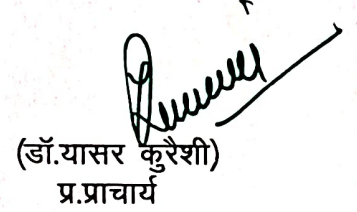 (डॉ.यासर कुरैशी)
प्र.प्राचार्य